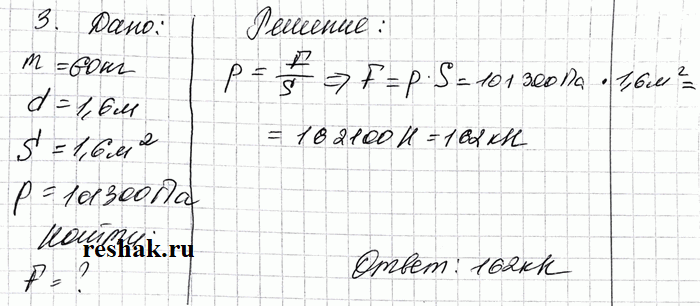 3. Дано:
m = 60кг
d = 1,6м
S = 1,6м²
p = 101300Па
Найти:
reshak.ru
F = ?
Решение:
p = F/S ⇒ F = p · S = 101300Па · 1,6м² =
= 162100 Н = 162кН
Ответ: 162кН